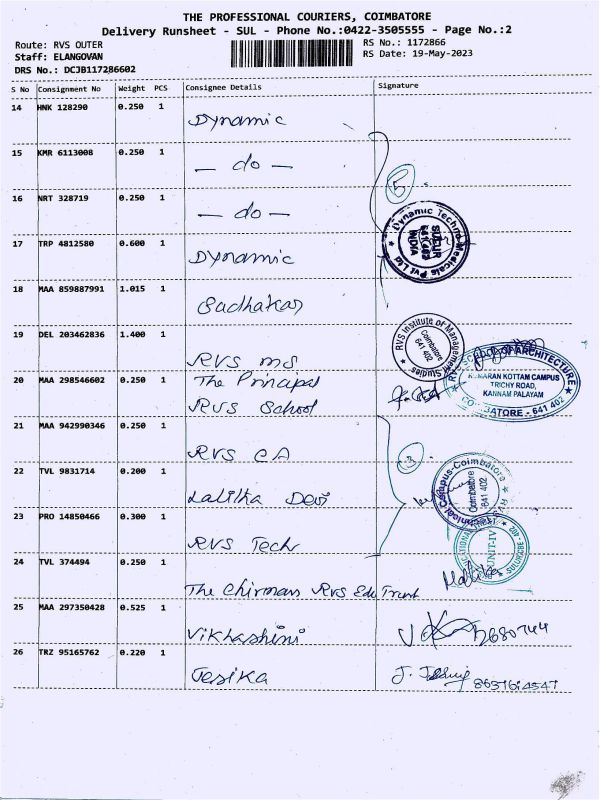 THE PROFESSIONAL COURIERS, COIMBATORE
Delivery Runsheet - SUL - Phone No.:0422-3505555 - Page No.:2
Route: RVS OUTER
RS No.: 1172866
Staff: ELANGOVAN
RS Date: 19-May-2023
DRS No.: DCJB117286602
S No Consignment No Weight PCS Consignee Details Signature
14 HNK 128290 0.250 1
Dynamic
15 KMR 6113008 0.250 1
— do —
5
16 NRT 328719 0.250 1
— do —
Dynamic Techno Medicals Pvt Ltd
SULUR
641 402
INDIA
17 TRP 4812580 0.600 1
Dynamic
18 MAA 859887991 1.015 1
Sudhakar
19 DEL 203462836 1.400 1
RVS Institute of Management Studies
Coimbatore
641 402
RVS MS
20 MAA 298546602 0.250 1
The Principal
RVS School
RVS SCHOOL OF ARCHITECTURE
KUMARAN KOTTAM CAMPUS
TRICHY ROAD,
KANNAM PALAYAM
COIMBATORE - 641 402
21 MAA 942990346 0.250 1
RVS CA
3
22 TVL 9831714 0.200 1
Lalitha Devi
RVS Technical Campus-Coimbatore
Coimbatore
641 402
23 PRO 14850466 0.300 1
RVS Tech
UNIT-IV
24 TVL 374494 0.250 1
The Chirman RVS Edu Trust
25 MAA 297350428 0.525 1
Vikhashini
26 TRZ 95165762 0.220 1
Jesika